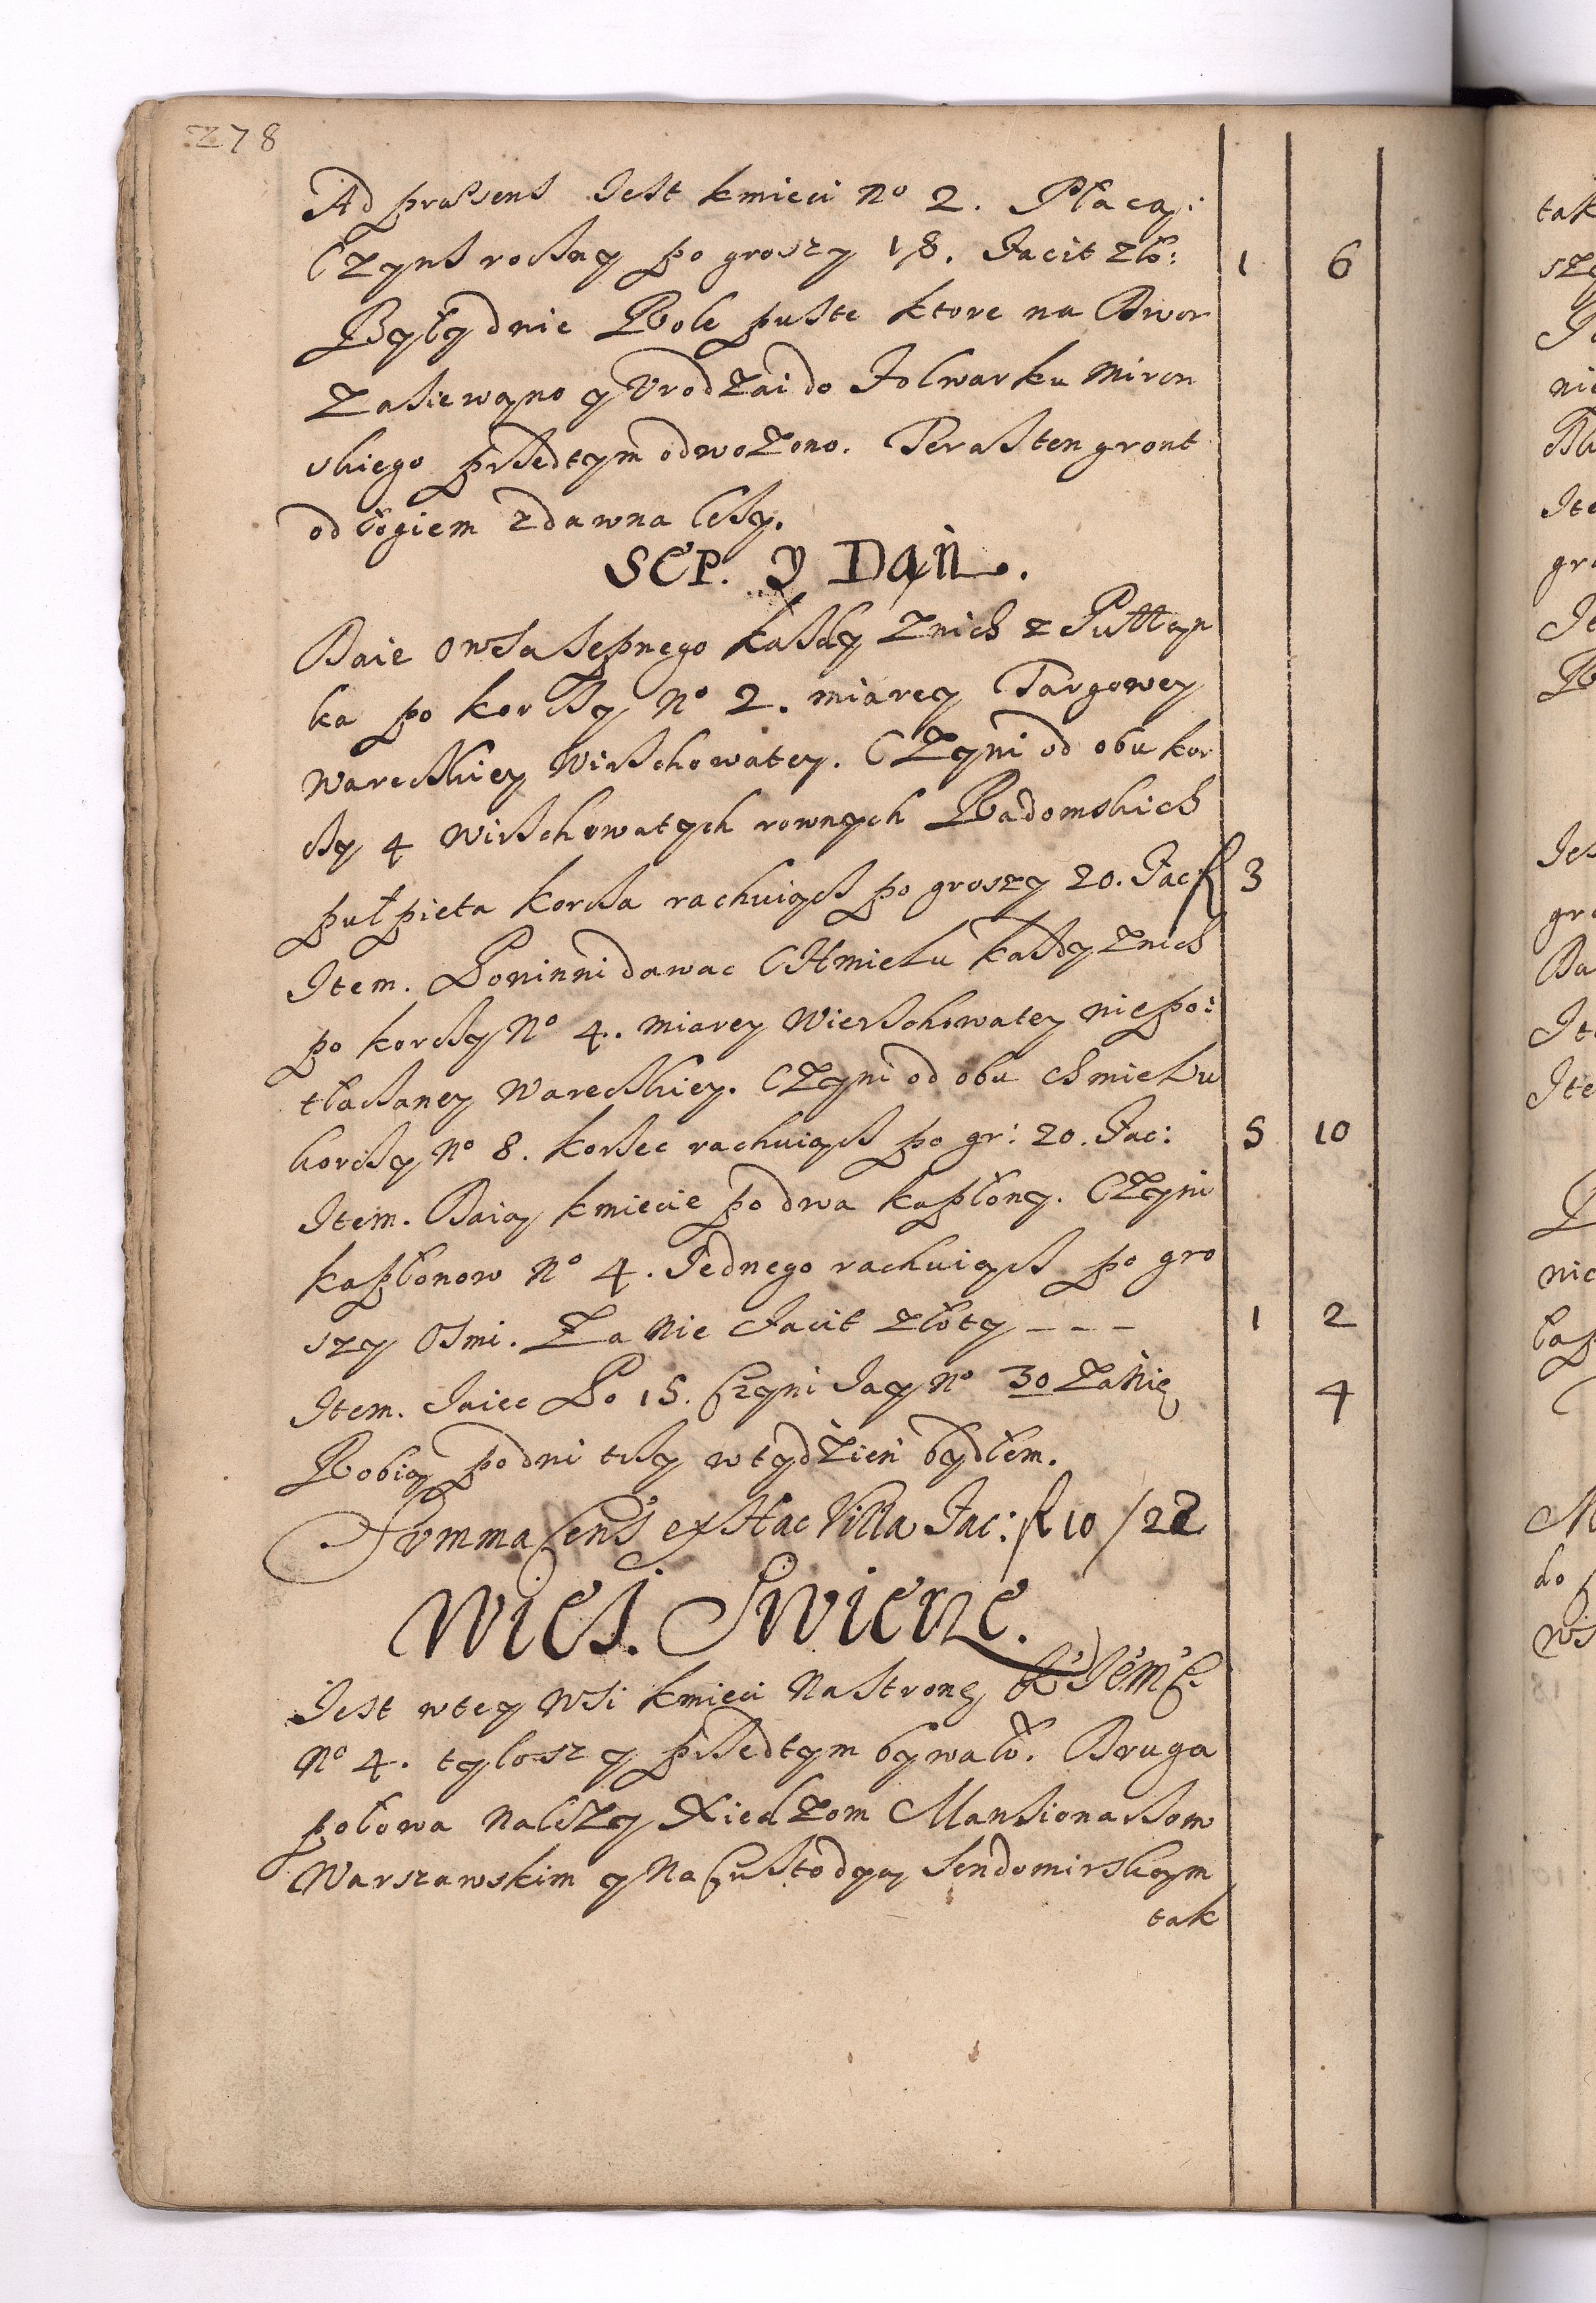 278
Ad præsens Jest kmieci No 2. Płacą:
Czynsz roczny po groszy 18. Facit zło: 1 6
Były dnie Role puste ktore na Dwor
zasiewano y Urodzai do Folwarku Miron
skiego przedtym odwożono. Teraz ten gront
odłogiem zdawna leży.
SEP. Y DAŃ.
Daie Owsa sepnego każdy z nich z Pułłan
ka po korczy No 2. miarey Targowey
Wareckiey Wirzchowatey. Czyni od obu kor
czy 4 Wirzchowatych rownych Radomskich
pułpięta korca rachuiącz po groszy 20. Fac: fl 3
Item. Powinni dawac Chmielu każdy z nich
po korczy No 4. miarey Wierzchowatey niepo:
tłaczaney Wareckiey. Czyni od obu chmielu
korczy No 8. korzec rachuiącz po gr: 20. Fac: 5 10
Item. Daią kmiecie po dwa kapłony. Czyni
kapłonow No 4. Jednego rachuiącz po gro
szy Osmi. Za nie Facit złoty - - - 1 2
Item. Jaiec Po 15. Czyni Jay No 30 Za Nie 4
Robią po dni trzy w tydzien bydłem.
Summa Cens ex Hac Villa Fac: fl 10 / 22
Wieś. Swierze.
Jest w tey Wsi kmieci Na stronę
No 4. tylosz y przedtym bywało. Druga
połowa Należy Xiedzom Mansionarzom
Warszawskim y Na Custodyą Sendomirskym
tak